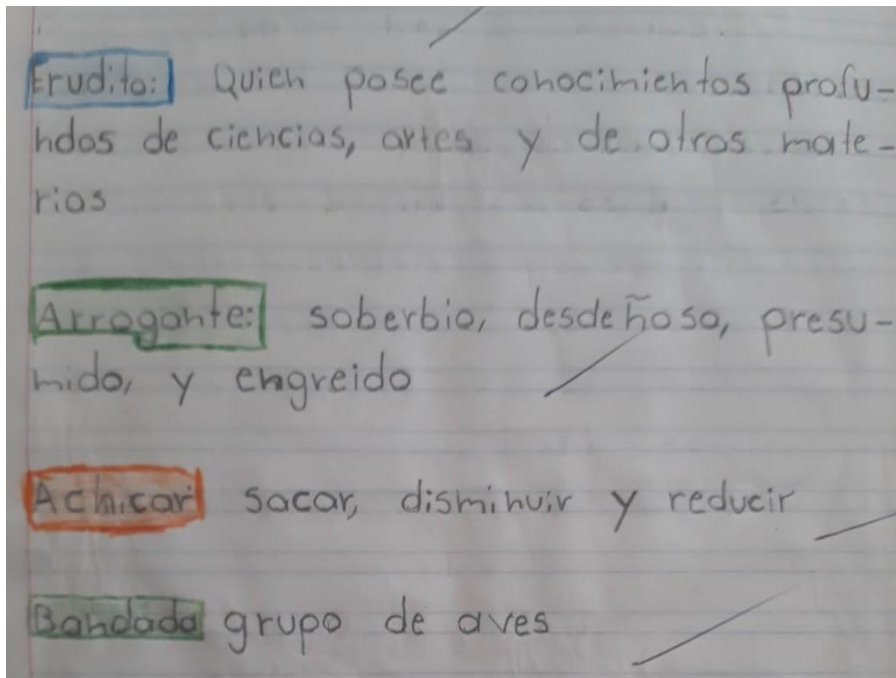 Erudito: Quien posee conocimientos profu-
ndos de ciencias, artes y de otros mate-
rias
Arrogante: soberbio, desdeñoso, presu-
mido, y engreido
Achicar sacar, disminuir y reducir
Bandada grupo de aves